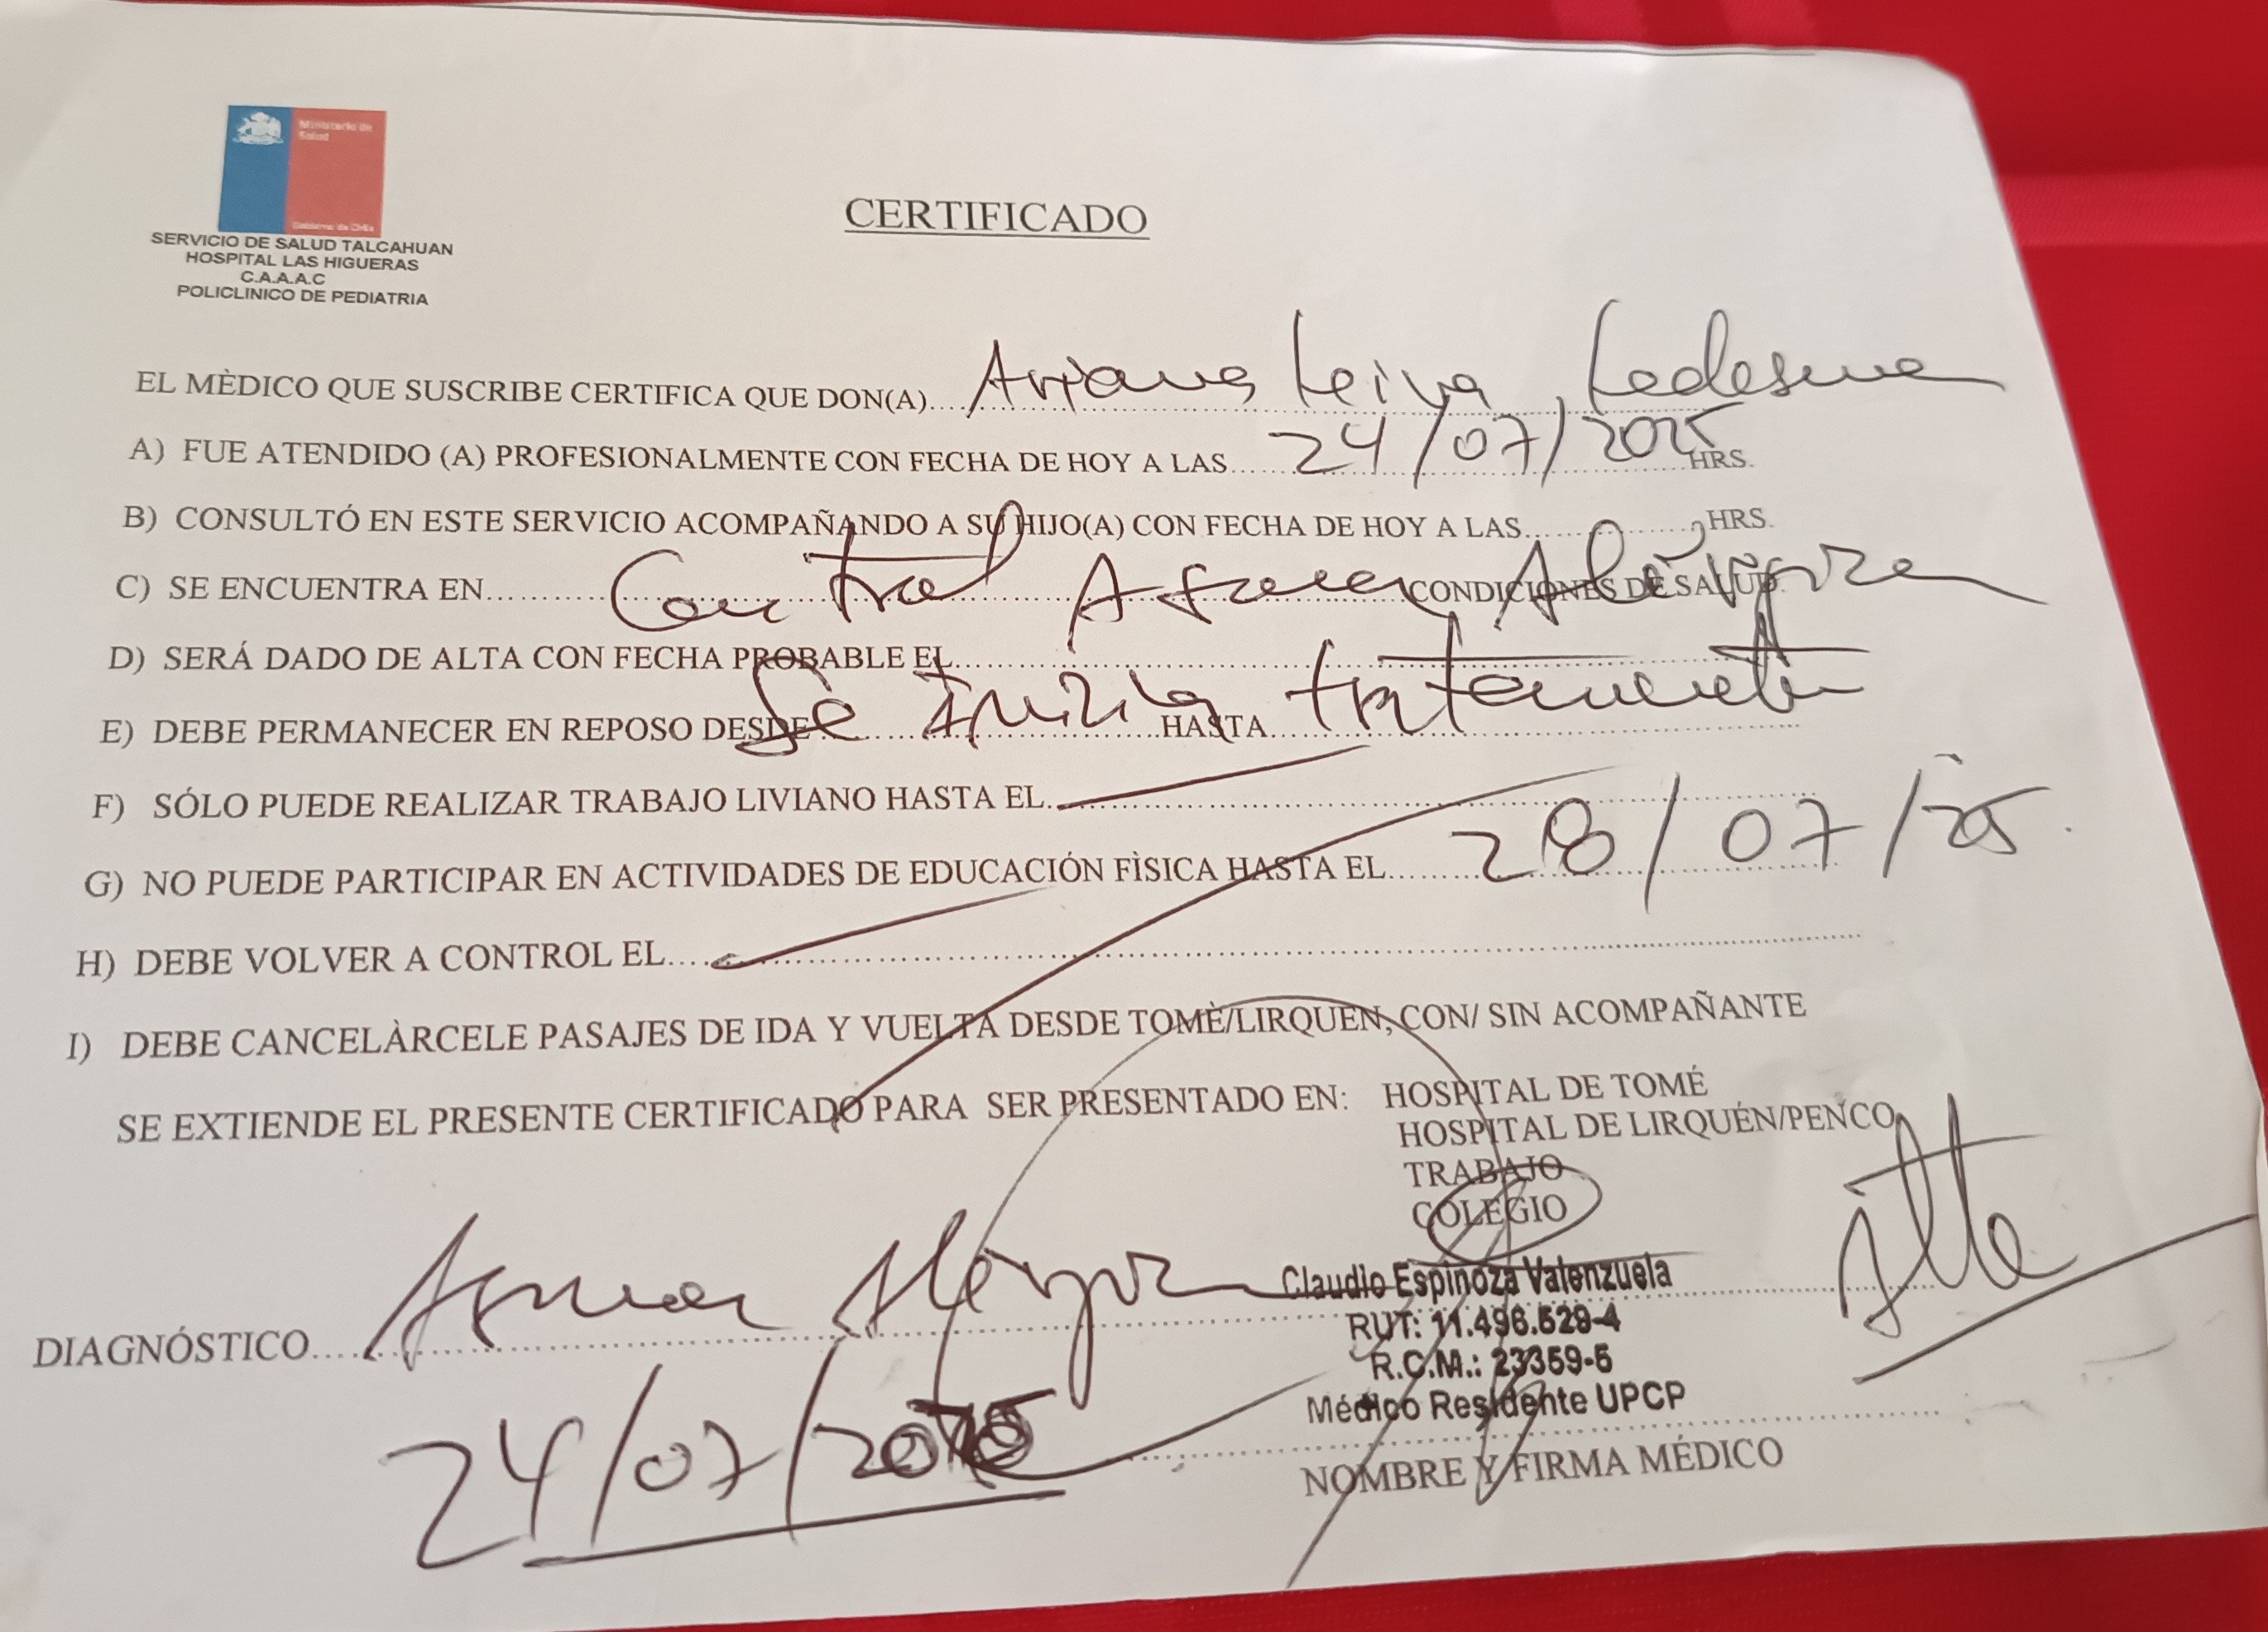 Ministerio de
Salud
Gobierno de Chile
SERVICIO DE SALUD TALCAHUAN
HOSPITAL LAS HIGUERAS
C.A.A.A.C
POLICLINICO DE PEDIATRIA
CERTIFICADO
EL MÈDICO QUE SUSCRIBE CERTIFICA QUE DON(A) Ariana Leiva Ledesma
A) FUE ATENDIDO (A) PROFESIONALMENTE CON FECHA DE HOY A LAS 24/07/2025 HRS.
B) CONSULTÓ EN ESTE SERVICIO ACOMPAÑANDO A SU HIJO(A) CON FECHA DE HOY A LAS HRS.
C) SE ENCUENTRA EN Control Asma Alérgica CONDICIONES DE SALUD.
D) SERÁ DADO DE ALTA CON FECHA PROBABLE EL
E) DEBE PERMANECER EN REPOSO DESDE Se inicia HASTA tratamiento
F) SÓLO PUEDE REALIZAR TRABAJO LIVIANO HASTA EL
G) NO PUEDE PARTICIPAR EN ACTIVIDADES DE EDUCACIÓN FÌSICA HASTA EL 28/07/25.
H) DEBE VOLVER A CONTROL EL
I) DEBE CANCELÀRCELE PASAJES DE IDA Y VUELTA DESDE TOMÈ/LIRQUEN, CON/ SIN ACOMPAÑANTE
SE EXTIENDE EL PRESENTE CERTIFICADO PARA SER PRESENTADO EN: HOSPITAL DE TOMÉ
HOSPITAL DE LIRQUÉN/PENCO
TRABAJO
COLEGIO
DIAGNÓSTICO Asma Alérgica
24/07/2025
Claudio Espinoza Valenzuela
RUT: 11.496.529-4
R.C.M.: 23359-5
Médico Residente UPCP
NOMBRE Y FIRMA MÉDICO